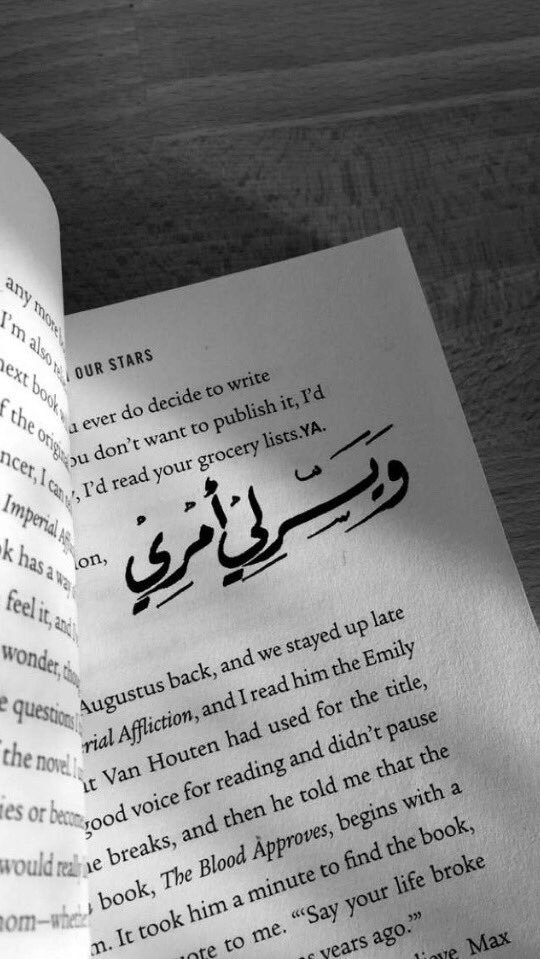 any more
I'm also
next book
f the origin
ncer, I can
Imperial Aff
k has a wa
feel it, and
wonder, tho
e questions
the novel. I
ies or become
would really
mom—whethe
OUR STARS
u ever do decide to write
ou don't want to publish it, I'd
, I'd read your grocery lists.YA.
وَيَسِّرلِي أَمْرِي
on,
Augustus back, and we stayed up late
rial Affliction, and I read him the Emily
t Van Houten had used for the title,
good voice for reading and didn't pause
e breaks, and then he told me that the
book, The Blood Approves, begins with a
m. It took him a minute to find the book,
ote to me. "'Say your life broke
years ago.'"
lieve Max